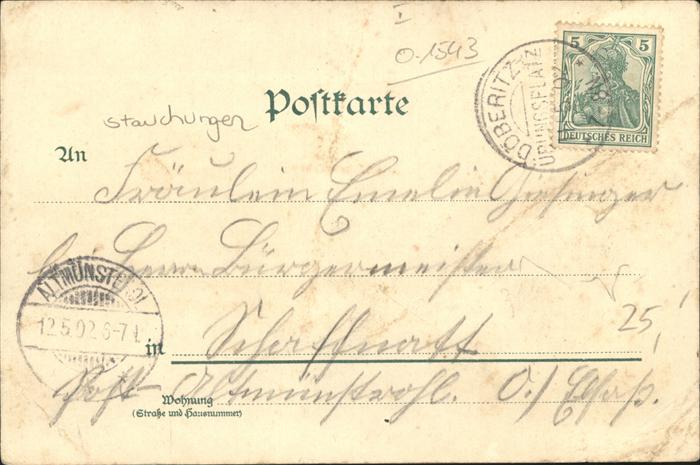 I
0.1543
5 5
DEUTSCHES REICH
DÖBERITZ
ÜBUNGSPLATZ
Postkarte
stauchungen
An
Fräulein Emelie
bei Herrn Bürgermeister
ALTMÜNSTEROL
12.5.02 6-7
in Schaffnatt
25,
Post Altmünstrohl. O./Elsaß.
Wohnung
(Straße und Hausnummer)